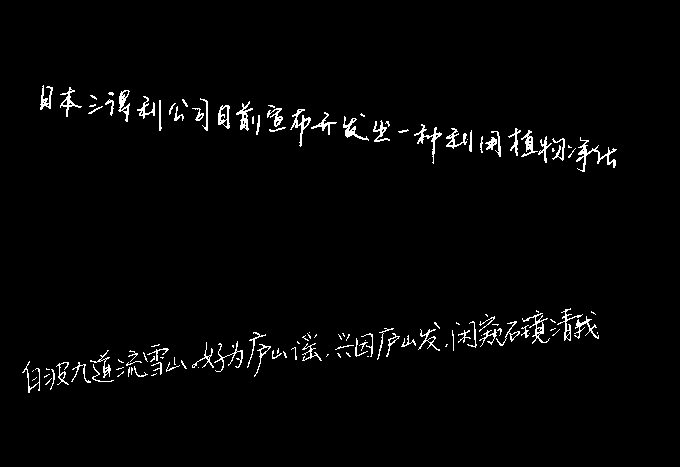 日本三得利公司日前宣布开发出一种利用植物净化
白波九道流雪山。好为庐山谣，兴因庐山发，闲窥石镜清我